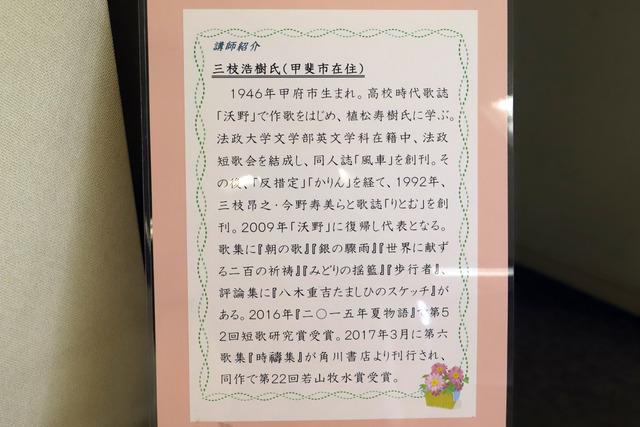 講師紹介
三枝浩樹氏(甲斐市在住)
1946年甲府市生まれ。高校時代歌誌
「沃野」で作歌をはじめ、植松寿樹氏に学ぶ。
法政大学文学部英文学科在籍中、法政
短歌会を結成し、同人誌「風車」を創刊。そ
の後、「反措定」「かりん」を経て、1992年、
三枝昂之・今野寿美らと歌誌「りとむ」を創
刊。2009年「沃野」に復帰し代表となる。
歌集に『朝の歌』『銀の驟雨』『世界に献ず
る二百の祈祷』『みどりの揺籃』『歩行者』、
評論集に『八木重吉たましひのスケッチ』が
ある。2016年『二〇一五年夏物語』で第5
2回短歌研究賞受賞。2017年3月に第六
歌集『時禱集』が角川書店より刊行され、
同作で第22回若山牧水賞受賞。